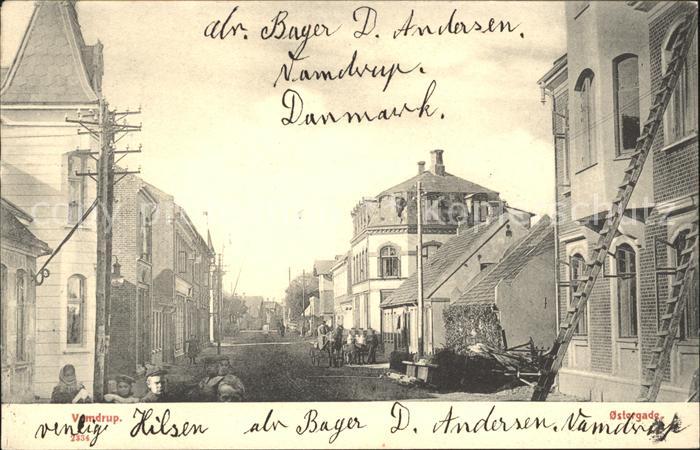 adr. Bager D. Andersen.
Vamdrup.
Danmark.
Vamdrup. Østergade.
2334
venlig Hilsen adr Bager D. Andersen. Vamdrup